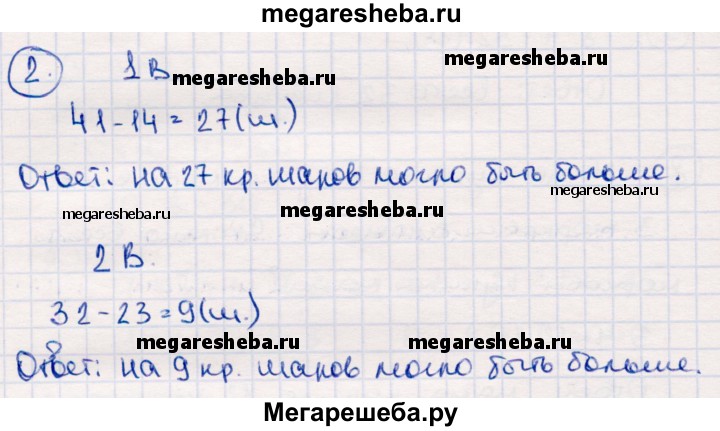 megaresheba.ru
2. 1 В
megaresheba.ru megaresheba.ru
41-14 = 27(ш.)
Ответ: на 27 кр. шаров могло быть больше.
megaresheba.ru
megaresheba.ru megaresheba.ru
2 В.
32-23=9(ш.)
megaresheba.ru megaresheba.ru
Ответ: на 9 кр. шаров могло быть больше.
Мегарешеба.ру